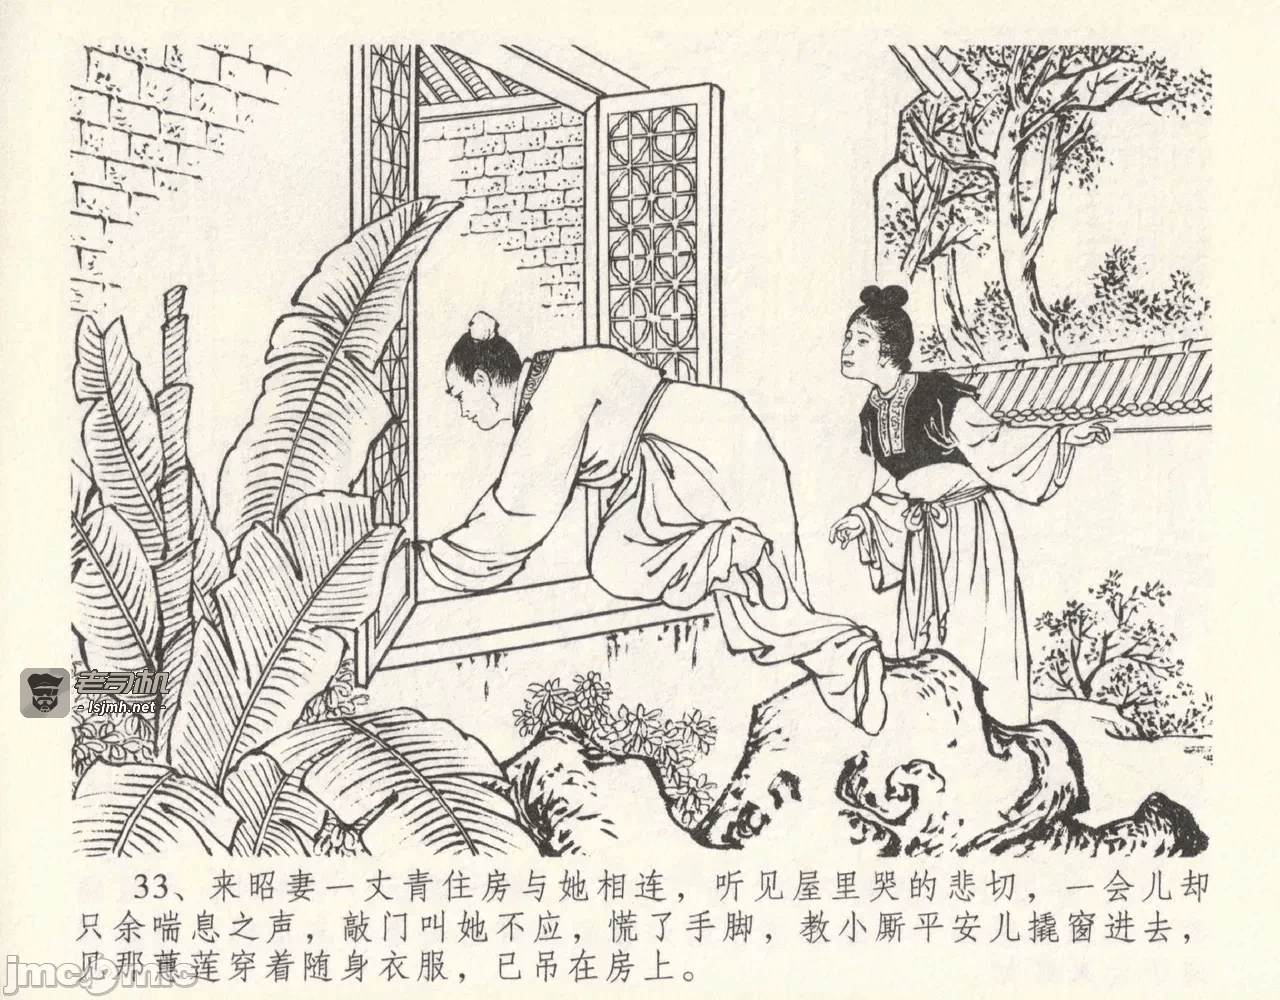 老司机
- lsjmh.net -
33、来昭妻一丈青住房与她相连，听见屋里哭的悲切，一会儿却
只余喘息之声，敲门叫她不应，慌了手脚，教小厮平安儿撬窗进去，
见那蕙莲穿着随身衣服，已吊在房上。
jmc2mic